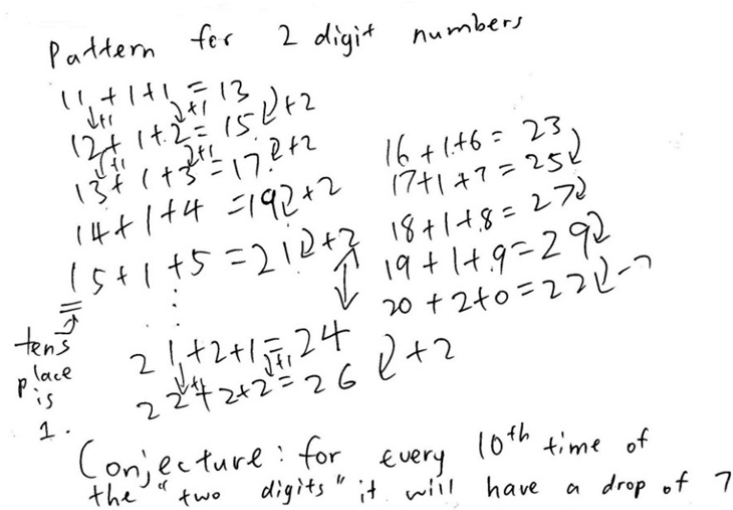 Pattern for 2 digit numbers
11 + 1+1 = 13
↓+1 ↓+1
12+ 1+2 = 15 +2
↓+1 2+1
13+ 1+3 = 17 +2
14+1+4 = 19 +2
15+1+5 = 21 +2
⋮
ten's
place
is
1.
21+2+1 = 24
↓+1 ↓+1
22+2+2 = 26 +2
16+1+6 = 23
17+1+7 = 25
18+1+8 = 27
19+1+9 = 29
20+2+0 = 22 -7
Conjecture: for every 10th time of
the "two digits" it will have a drop of 7